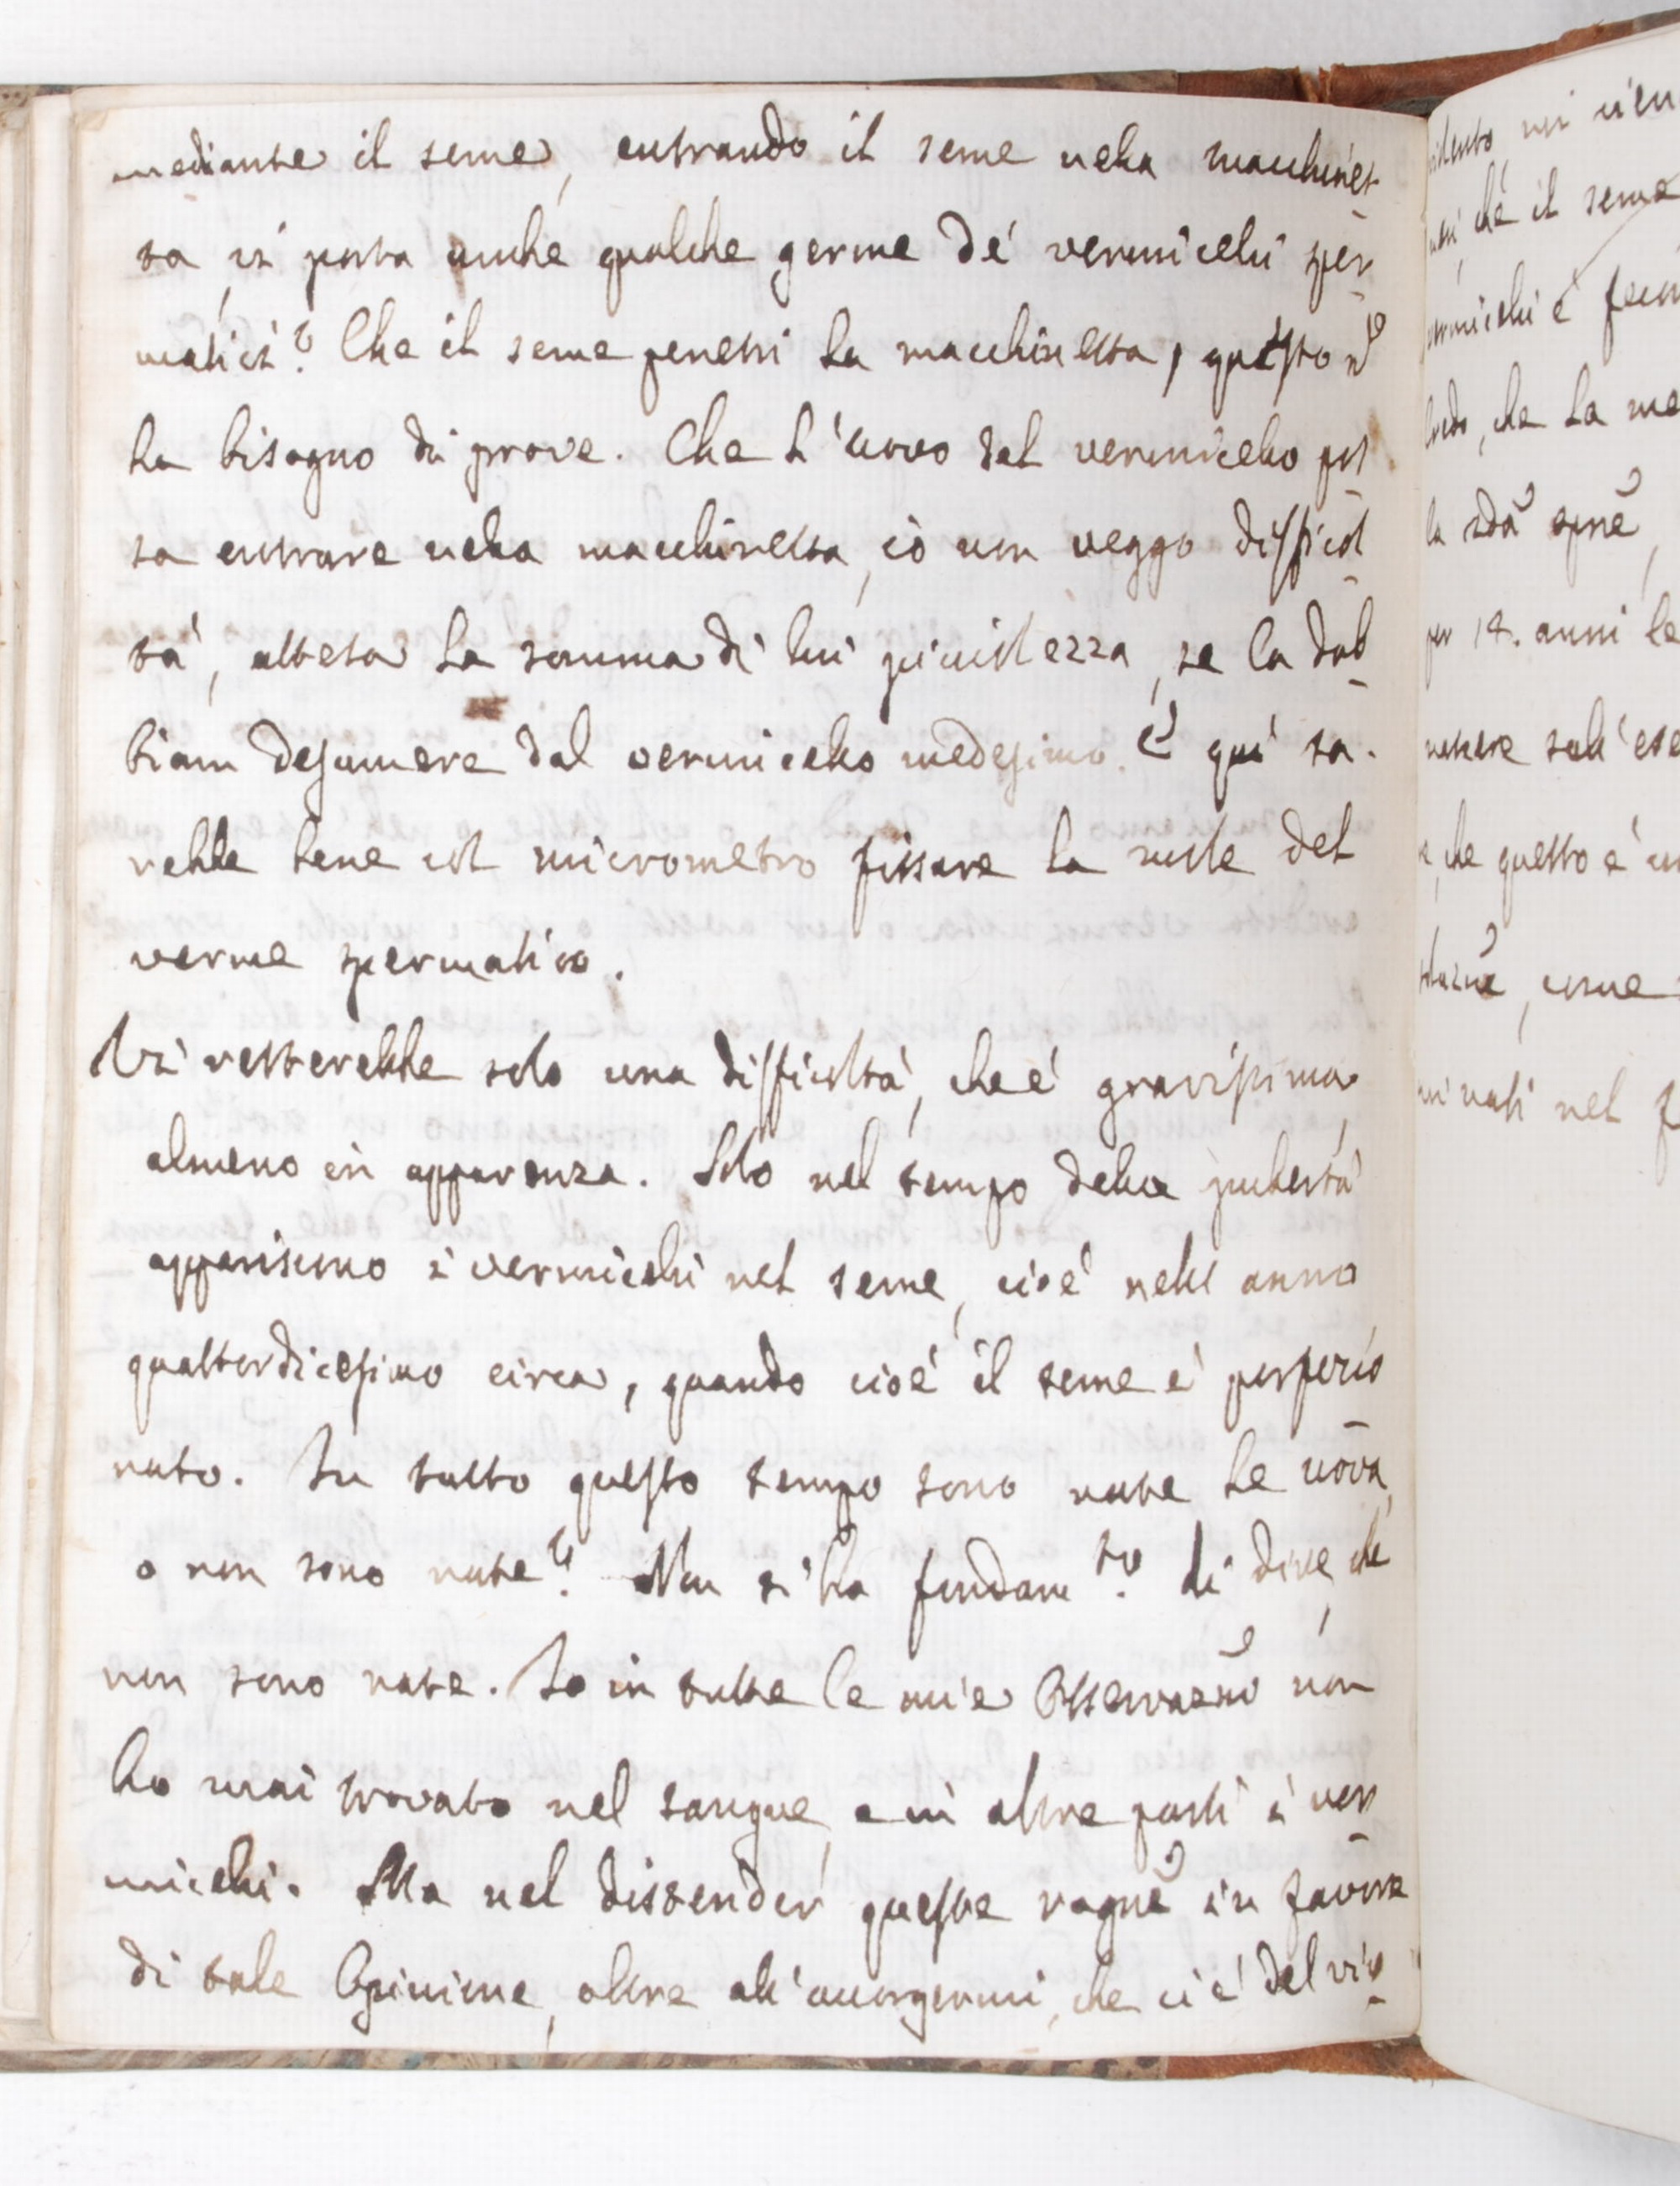 mediante il seme, entrando il seme nella macchinet-
ta, vi porta anche qualche germe de' vermicelli sper-
matici? Che il seme penetri la macchinetta, questo nō
ha bisogno di prove. Che l'uovo del vermicello pos-
sa entrare nella macchinetta, iò non veggo difficol-
tà, attesa la somma di lui picciolezza, se la dob-
biam desumere dal vermicello medesimo. E quì sa-
rebbe bene col micrometro fissare la mole del
verme spermatico.
Vi resterebbe solo una difficoltà, che è gravissima,
almeno in apparenza. Solo nel tempo della pubertà
appariscono i vermicelli nel seme, cioè nell anno
quattordicesimo circa, quando cioè il seme è perfezio-
nato. In tutto questo tempo sono nate le uova,
o non sono nate? Non si ha fondam.to di dire, che
non sono nate. Io in tutte le mie Osservazñi non
ho mai trovato nel sangue, e in altre parti i ver-
micelli. Ma nel distender queste ragñi in favore
di tale Opinione, oltre all'accorgermi, che ci è del vi-
idento, mi vien
che il seme
vermicelli è fecon
che la ma
la sdā
per 18. anni le
sull'
che questo è un
come
nati nel f